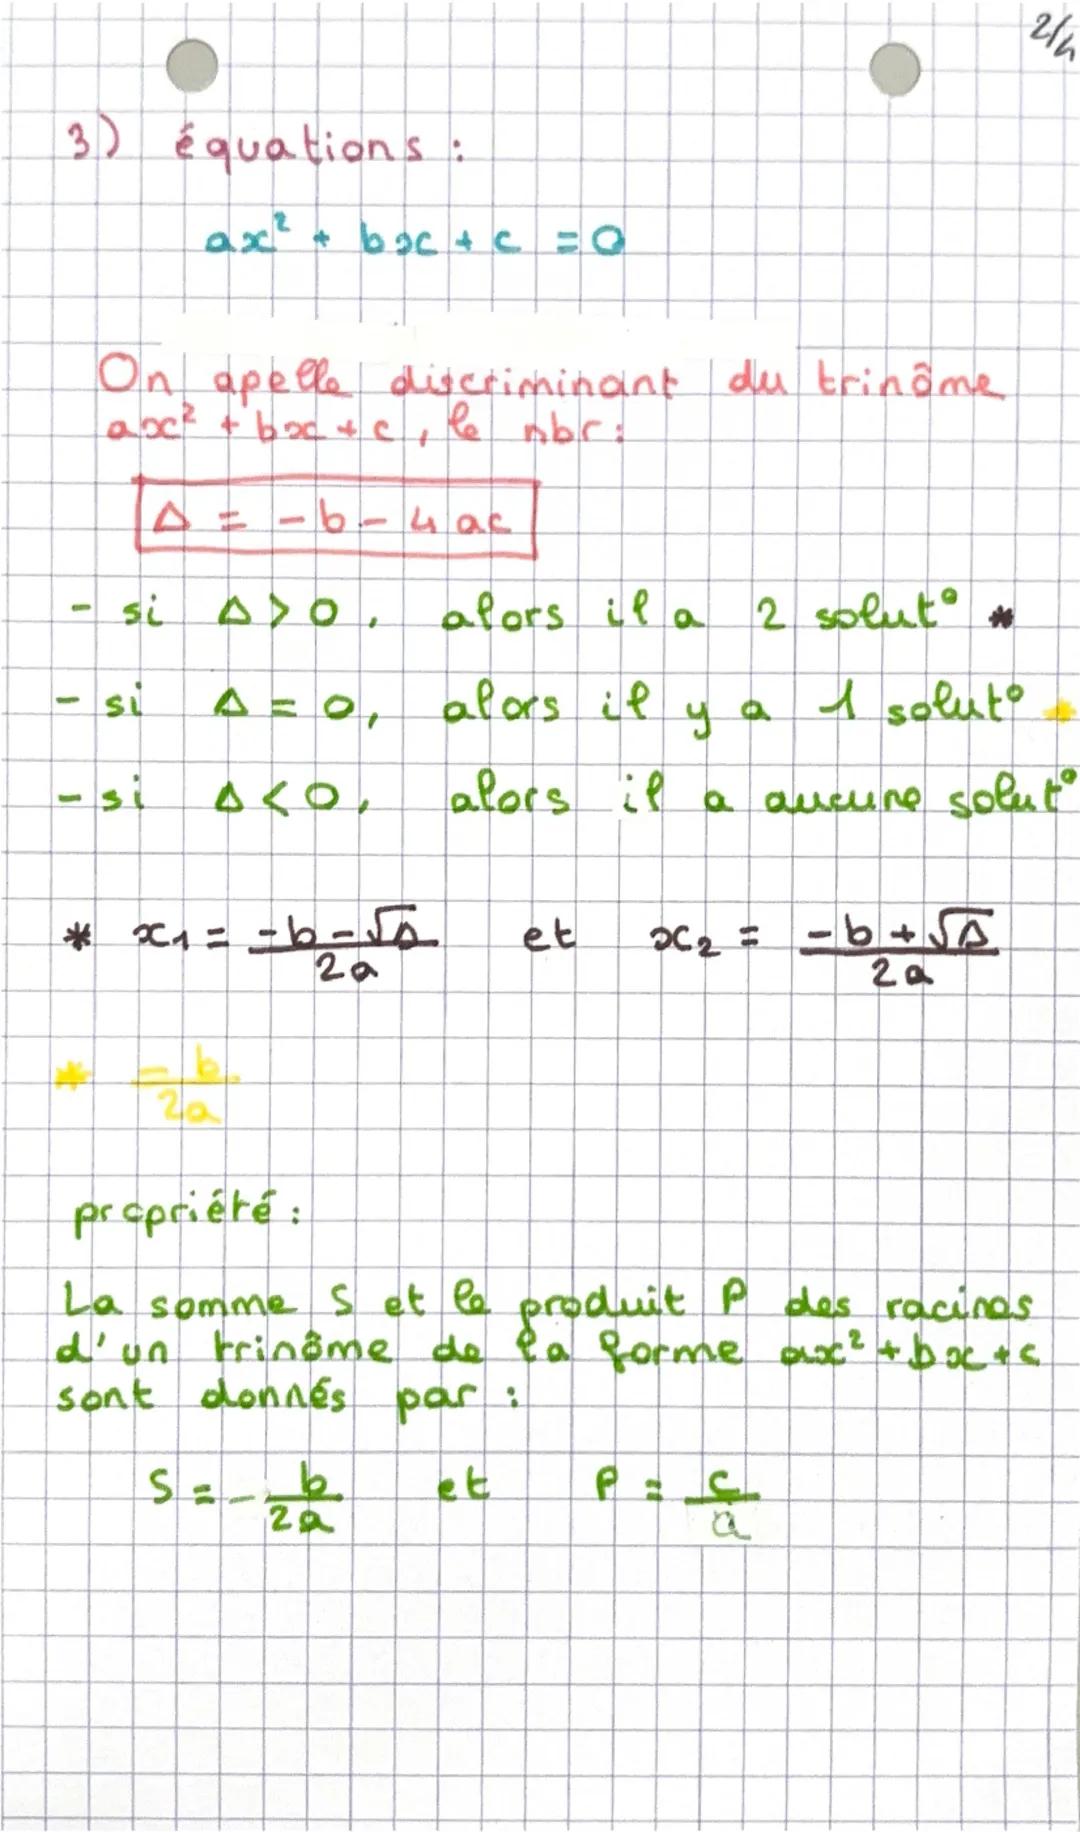 2/4
3) équations :
ax² + bx + c = 0
On apelle discriminant du trinôme
ax² + bx + c, le nbr :
Δ = -b - 4 ac
- si Δ > 0, alors il a 2 solut° *
- si Δ = 0, alors il y a 1 solut° *
- si Δ < 0, alors il a aucune solut°
* x₁ = (-b - √Δ)/(2a) et x₂ = (-b + √Δ)/(2a)
* -b/(2a)
propriété :
La somme S et le produit P des racines
d'un trinôme de la forme ax² + bx + c
sont donnés par :
S = -b/(2a) et P = c/a